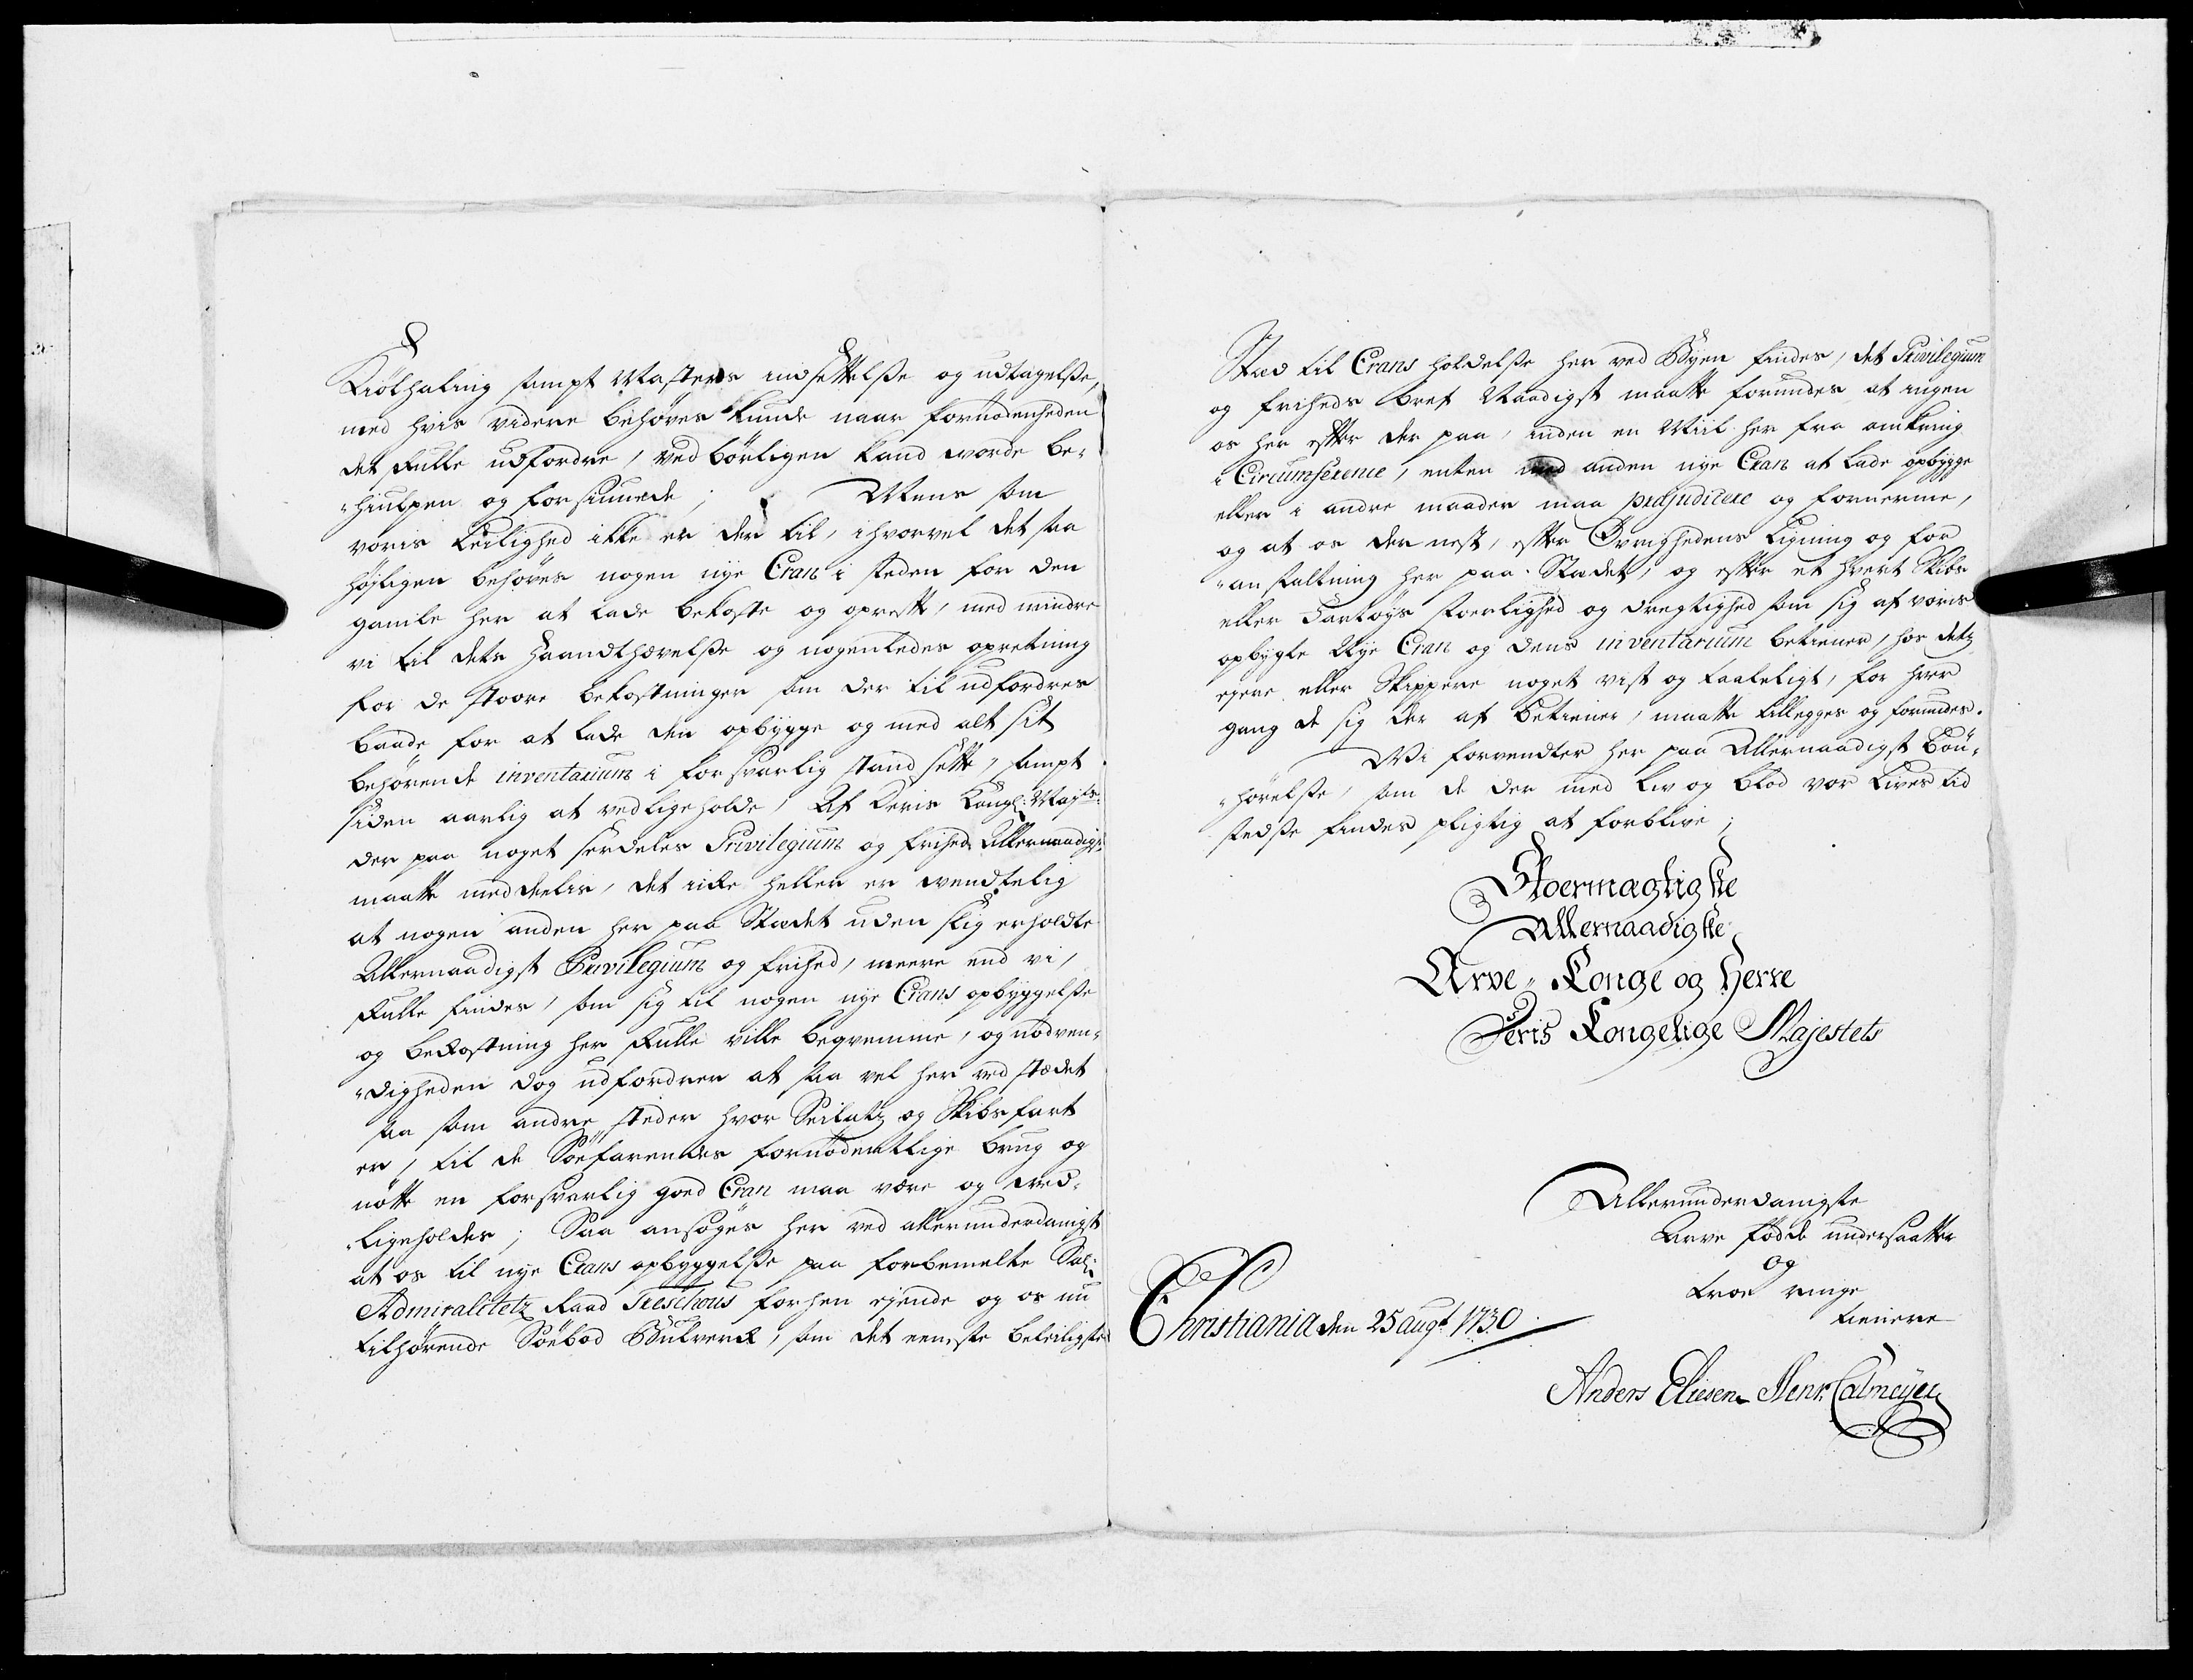 Kiölhaling sampt Masters indsettelse og udtagelse,
med hvis videre behöves kunde naar fornödenheden
det skulle udfordre, ved börligen kand vorde be-
hiulpen og forsiunede; Mens som
voris leilighed ikke er der til, ihvorvel det saa
höyligen behöves nogen nye Cran i steden for den
gamle her at lade bekoste og oprette, med mindre
vi til dets haandthævelse og nogenledes opretning
for de stoore bekostninger som der til udfordres
baade for at lade den opbygge og med alt sit
behörende inventarium i forsvarlig stand sette, sampt
siden aarlig at vedligeholde, Af Deris Kongl: Majts:
der paa noget serdeles Privilegium og frihed Allernaadigst
maatte meddeelis, det icke heller er vendtelig
at nogen anden her paa Stædet uden slig erholdte
Allernaadigst Privilegium og frihed, meere end vi,
skulle findes, som sig til nogen nye Crans opbyggelse
og bekostning her skulle ville beqvemme, og nödven-
digheden dog udfordrer at saa vel her ved stædet
saa som andre steder hvor Seilatz og Skibsfart
er, til de Söefarendes fornödentlige brug og
nötte en forsvarlig goed Cran maa være og ved-
ligeholdes; Saa ansöges her ved allerunderdanigst
at os til nye Crans opbyggelse paa forbemelte Sal:
Admiralitetz Raad Treschous forhen ejende og os nu
tilhörende Söebod Bulverk, som det eeneste beleiligste
Stæd til Crans holdelse her ved Byen findes, det Privilegium
og friheds bref Naadigst maatte forundes at ingen
os her efter der paa, inden en Miil her fra omkring
i Circumference, enten med anden nye Cran at lade opbygge
eller i andre maader maa præjudicere og fornerme,
og at os der nest, efter Övrighedens ligning og for-
anstaltning her paa Stædet, og efter et hvert Skibs
eller Fartöys stoerlighed og dregtighed som sig af voris
opbygte Nye Cran og dens inventarium betiener, hos detz
ejere eller Skippere noget vist og taaleligt, for hver
gang de sig der af betiener, maatte tillegges og forundes.
Vi forventer her paa Allernaadigst bön-
hörelse, som de der med Liv og blod vor Lives tid
stedse findes pligtig at forblive;
Stoermægtigste
Allernaadigste
Arve-Konge og Herre
Deris Kongelige Majestets
Allerunderdanigste
Arve födde undersaatter
og
troe ringe
tienere
Christiania den 25 augt 1730
Anders Eliesen Henr. Calmeyer